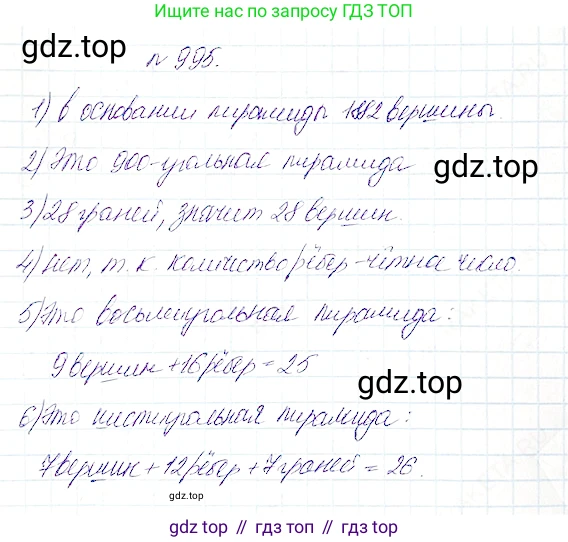 Ищите нас по запросу ГДЗ ТОП
gdz.top
№ 995.
1) В основании пирамиды вершины.
2) Это 900-угольная пирамида
gdz.top
3) 28 граней, значит 28 вершин.
4) Нет, т. к. количество рёбер - чётное число.
5) Это восьмиугольная пирамида:
9 вершин + 16 рёбер = 25
gdz.top
6) Это шестиугольная пирамида:
7 вершин + 12 рёбер + 7 граней = 26.
gdz.top
gdz.top // гдз топ // gdz.top // гдз топ